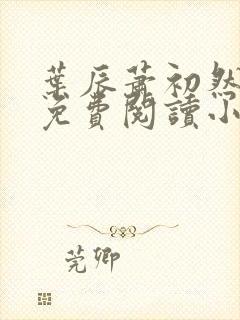 葉辰蕭初然
免費閱讀小
莞卿